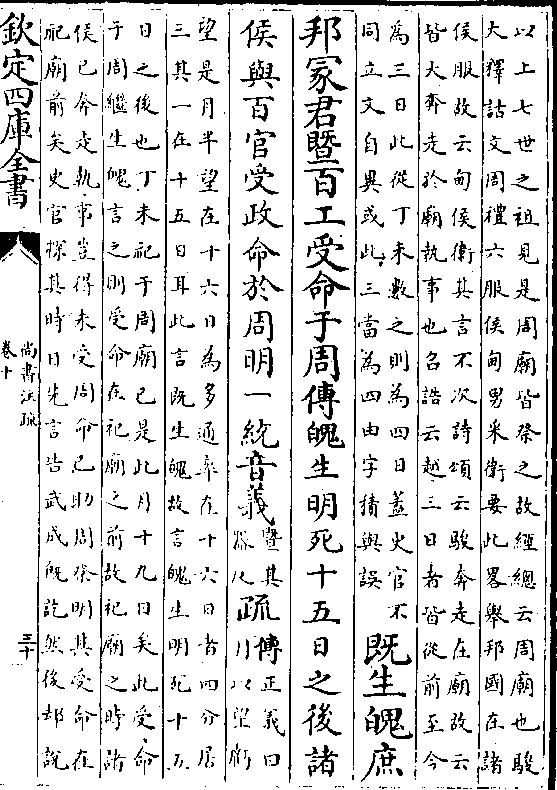 以上七世之祖見是周廟皆祭之故經總云周廟也駿
大釋詁文周禮六服侯甸男采衛要此畧舉邦國在諸
侯服故云甸侯衛其言不次詩頌云駿奔走在廟故云
皆大奔走於廟執事也召誥云越三日者皆從前至今
為三日此從丁未數之則為四日葢史官不
同立文自異或此三當為四由字積與誤
既生魄庶
邦冢君暨百工受命于周傳魄生明死十五日之後諸
侯與百官受政命於周明一統音義
暨其
器反
疏
傳正義曰
月以望虧
望是月半望在十六日為多通率在十六日者四分居
三其一在十五日耳此言既生魄故言魄生明死十五
日之後也丁未祀于周廟已是此月十九日矣此受命
于周繼生魄言之則受命在祀廟之前故祀廟之時諸
侯已奔走執事豈得未受周命已助周祭明其受命在
祀廟前矣史官探其時日先言告武成既訖然後却說
欽定四庫全書
尚書注疏
卷十
三十